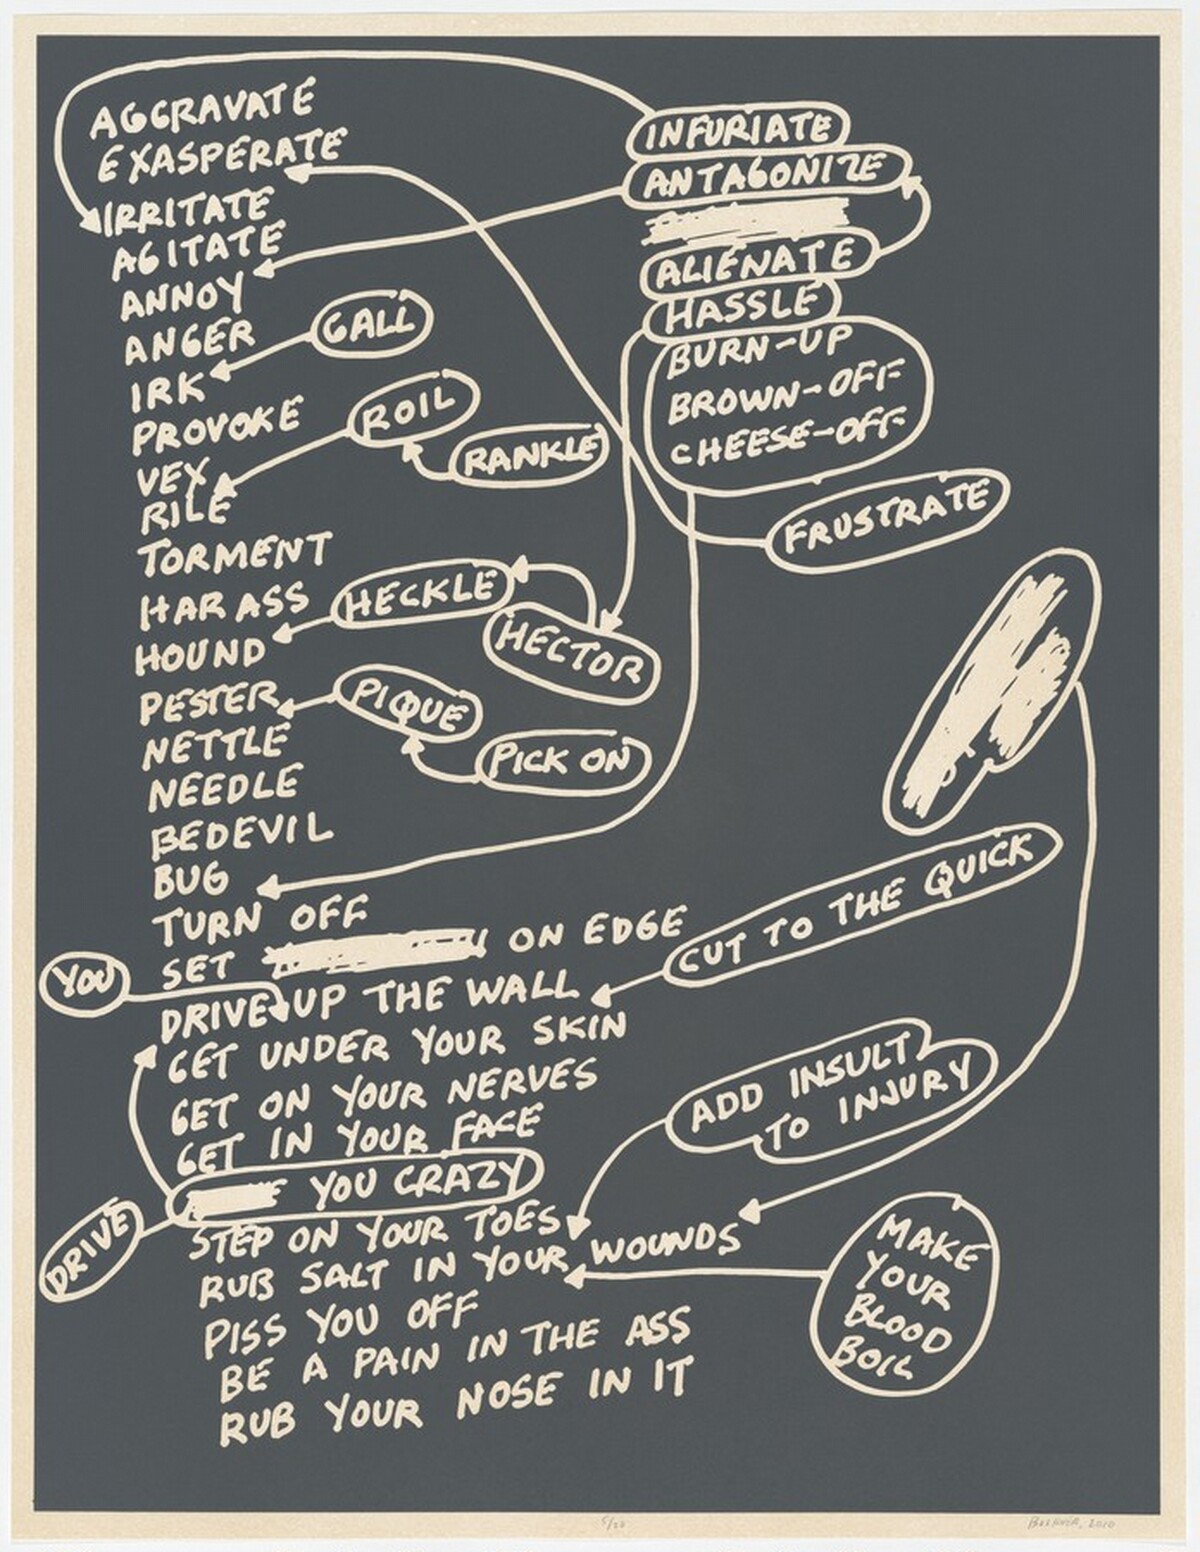 AGGRAVATE
EXASPERATE
IRRITATE
AGITATE
ANNOY
ANGER
IRK
PROVOKE
VEX
RILE
TORMENT
HARASS
HOUND
PESTER
NETTLE
NEEDLE
BEDEVIL
BUG
TURN OFF
SET ON EDGE
DRIVE UP THE WALL
GET UNDER YOUR SKIN
GET ON YOUR NERVES
GET IN YOUR FACE
YOU CRAZY
STEP ON YOUR TOES
RUB SALT IN YOUR WOUNDS
PISS YOU OFF
BE A PAIN IN THE ASS
RUB YOUR NOSE IN IT
YOU
DRIVE
GALL
ROIL
RANKLE
HECKLE
HECTOR
PIQUE
PICK ON
INFURIATE
ANTAGONIZE
ALIENATE
HASSLE
BURN-UP
BROWN-OFF
CHEESE-OFF
FRUSTRATE
CUT TO THE QUICK
ADD INSULT
TO INJURY
MAKE
YOUR
BLOOD
BOIL
5/20
2010